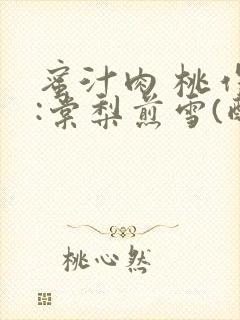 蜜汁肉桃作
:棠梨煎雪(
桃心然